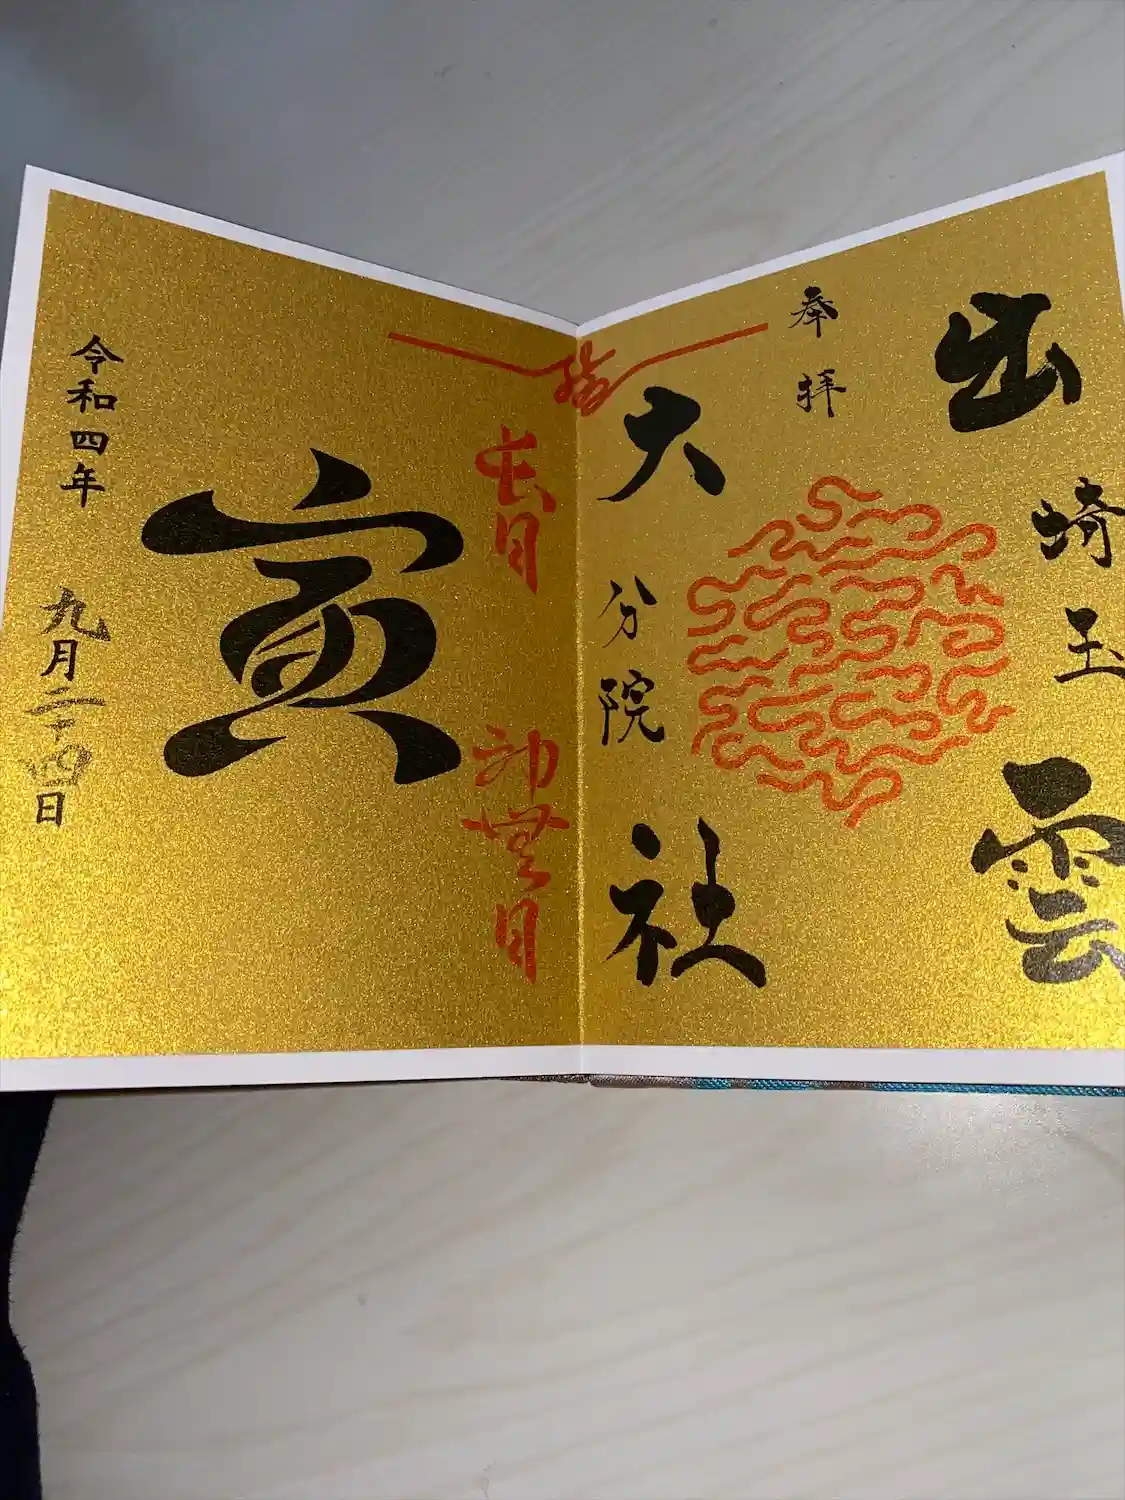 出雲
埼玉
奉拝
大社
分院
結
長月
神無月
寅
令和四年 九月二十四日